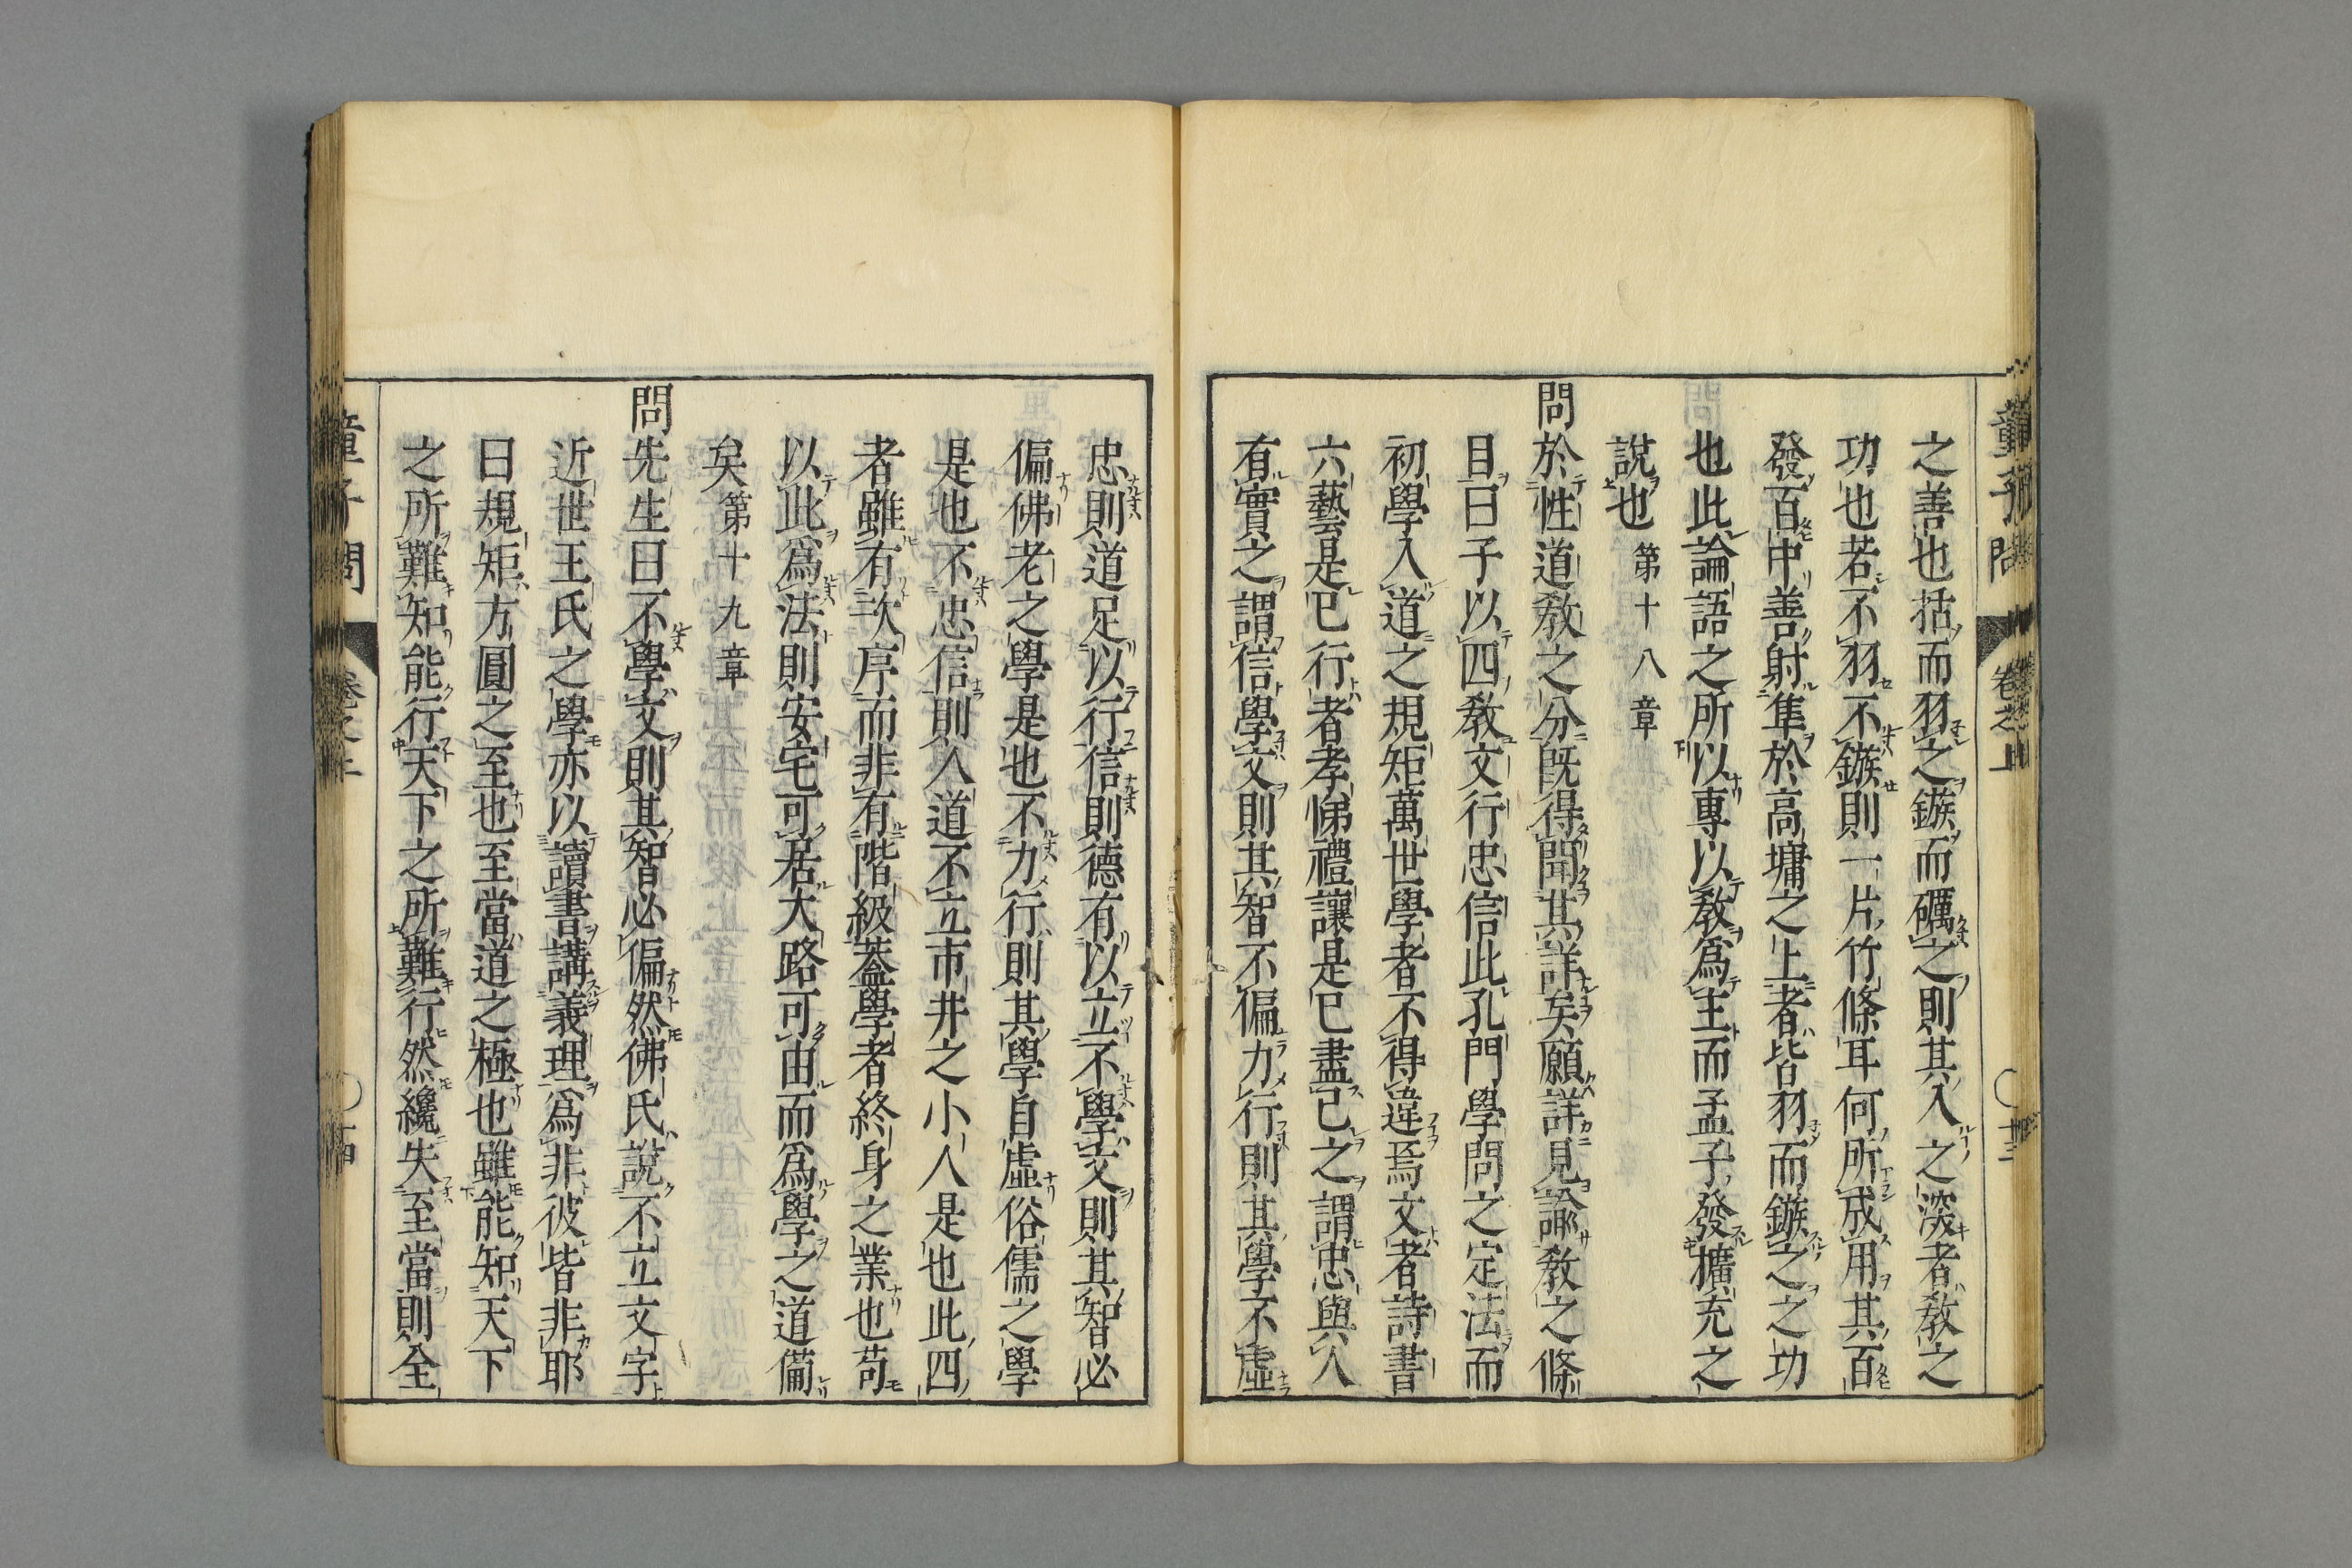 之善也括而羽之鏃而礪之則其入之深者教之
功也若不羽不鏃則一片竹條耳何所成用其百
發百中善射隼於高墉之上者皆羽而鏃之之功
也此論語之所以專以教為主而孟子發擴充之
說也 第十八章
問於性道教之分既得聞其詳矣願詳見諭教之條
目曰子以四教文行忠信此孔門學問之定法而
初學入道之規矩萬世學者不得違焉文者詩書
六藝是已行者孝悌禮讓是已盡己之謂忠與人
有實之謂信學文則其智不偏力行則其學不虛
忠則道足以行信則德有以立不學文則其智必
偏佛老之學是也不力行則其學自虛俗儒之學
是也不忠信則入道不立市井之小人是也此四
者雖有次序而非有階級蓋學者終身之業也苟
以此為法則安宅可居大路可由而為學之道備
矣 第十九章
問先生曰不學文則其智必偏然佛氏說不立文字
近世王氏之學亦以讀書講義理為非彼皆非耶
曰規矩方圓之至也至當道之極也雖能知天下
之所難知能行天下之所難行然纔失至當則全
童子問 卷之上 十三
童子問 卷之上 十四